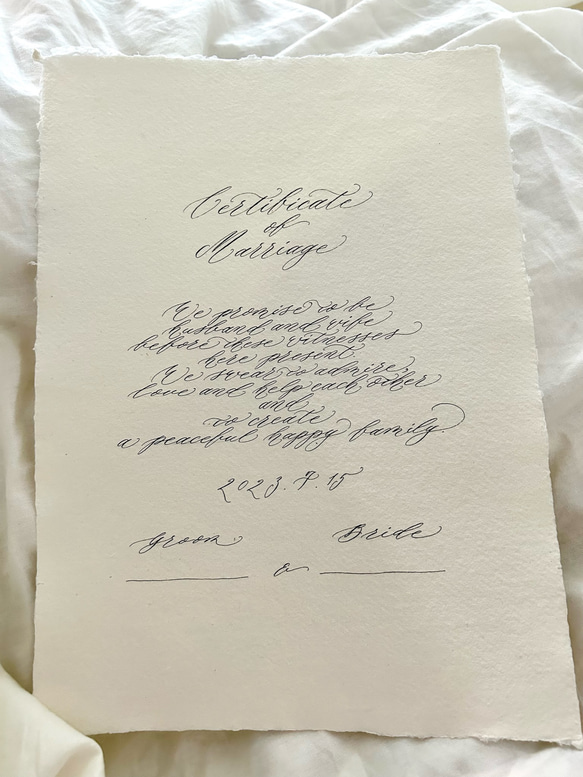 Certificate
of
Marriage
We promise to be
husband and wife
before these witnesses
here present.
We swear to admire,
love and help each other
and
to create
a peaceful happy family.
2023.7.15
Groom Bride
&